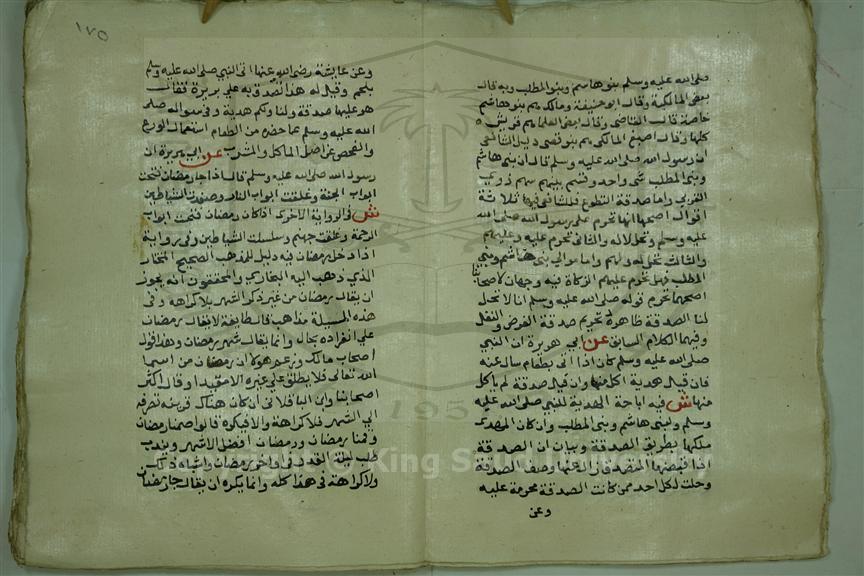 صلى الله عليه وسلم بنو هاشم وبنو المطلب وبه قال
بعض المالكية وقال ابو حنيفة ومالك هم بنو هاشم
خاصة قال القاضي وقال بعض العلماء هم قريش
كلها وقال اصبغ المالكي هم بنو قصي دليل الشافعي
ان رسول الله صلى الله عليه وسلم قال ان بني هاشم
وبني المطلب شي واحد وقسم بينهم سهم ذوي
القربى واما صدقة التطوع فللشافعي فيها ثلاثة
اقوال اصحها انها تحرم على رسول الله صلى الله
عليه وسلم وتحل لاله والثاني تحرم عليه وعليهم
والثالث تحل له ولهم واما موالي بني هاشم وبني
المطلب فهل تحرم عليهم الزكاة فيه وجهان لاصحابنا
اصحهما تحرم قوله صلى الله عليه وسلم انا لا تحل
لنا الصدقة ظاهره تحريم صدقة الفرض والنفل
وفيها الكلام السابق عن ابي هريرة ان النبي
صلى الله عليه وسلم كان اذا اتى بطعام سال عنه
فان قيل هدية اكل منها وان قيل صدقة لم ياكل
منها ش فيه اباحة الهدية للنبي صلى الله عليه
وسلم ولبني هاشم وبني المطلب وان كان المهدى
ملكها بطريق الصدقة وبيان ان الصدقة
اذا قبضها المتصدق زال عنها وصف الصدقة
وحلت لكل احد ممن كانت الصدقة محرمة عليه
وعن
١٧٥
وعن عايشة رضي الله عنها اتى النبي صلى الله عليه وسلم
بلحم وقيل له هذا تصدق به على بريرة فقال
هو عليها صدقة ولنا ولكم هدية وفي سواله صلى
الله عليه وسلم عما حضره من الطعام استعمال الورع
والفحص عن اصل الماكل والمشرب عن ابي هريرة ان
رسول الله صلى الله عليه وسلم قال اذا جا رمضان فتحت
ابواب الجنة وغلقت ابواب النار وصفدت الشياطين
ش في الرواية الاخرى اذا كان رمضان فتحت ابواب
الرحمة وغلقت جهنم وسلسلت الشياطين وفي رواية
اذا دخل رمضان فيه دليل للمذهب الصحيح المختار
الذي ذهب اليه البخاري والمحققون انه يجوز
ان يقال رمضان من غير ذكر الشهر بلا كراهة وفي
هذه المسيلة مذاهب قال طايفة لا يقال رمضان
على انفراده بحال وانما يقال شهر رمضان وهذا قول
اصحاب مالك وزعم هولا ان رمضان من اسما
الله تعالى فلا يطلق على غيره الا مقيدا وقال اكثر
اصحابنا وابن الباقلاني ان كان هناك قرينة تصرفه
الى الشهر فلا كراهة والا فيكره قالوا صمنا رمضان
وقمنا رمضان ورمضان افضل الاشهر ويندب
طلب ليلة القدر في اواخر رمضان واشباه ذلك
ولا كراهة في هذا كله وانما يكره ان يقال جا رمضان